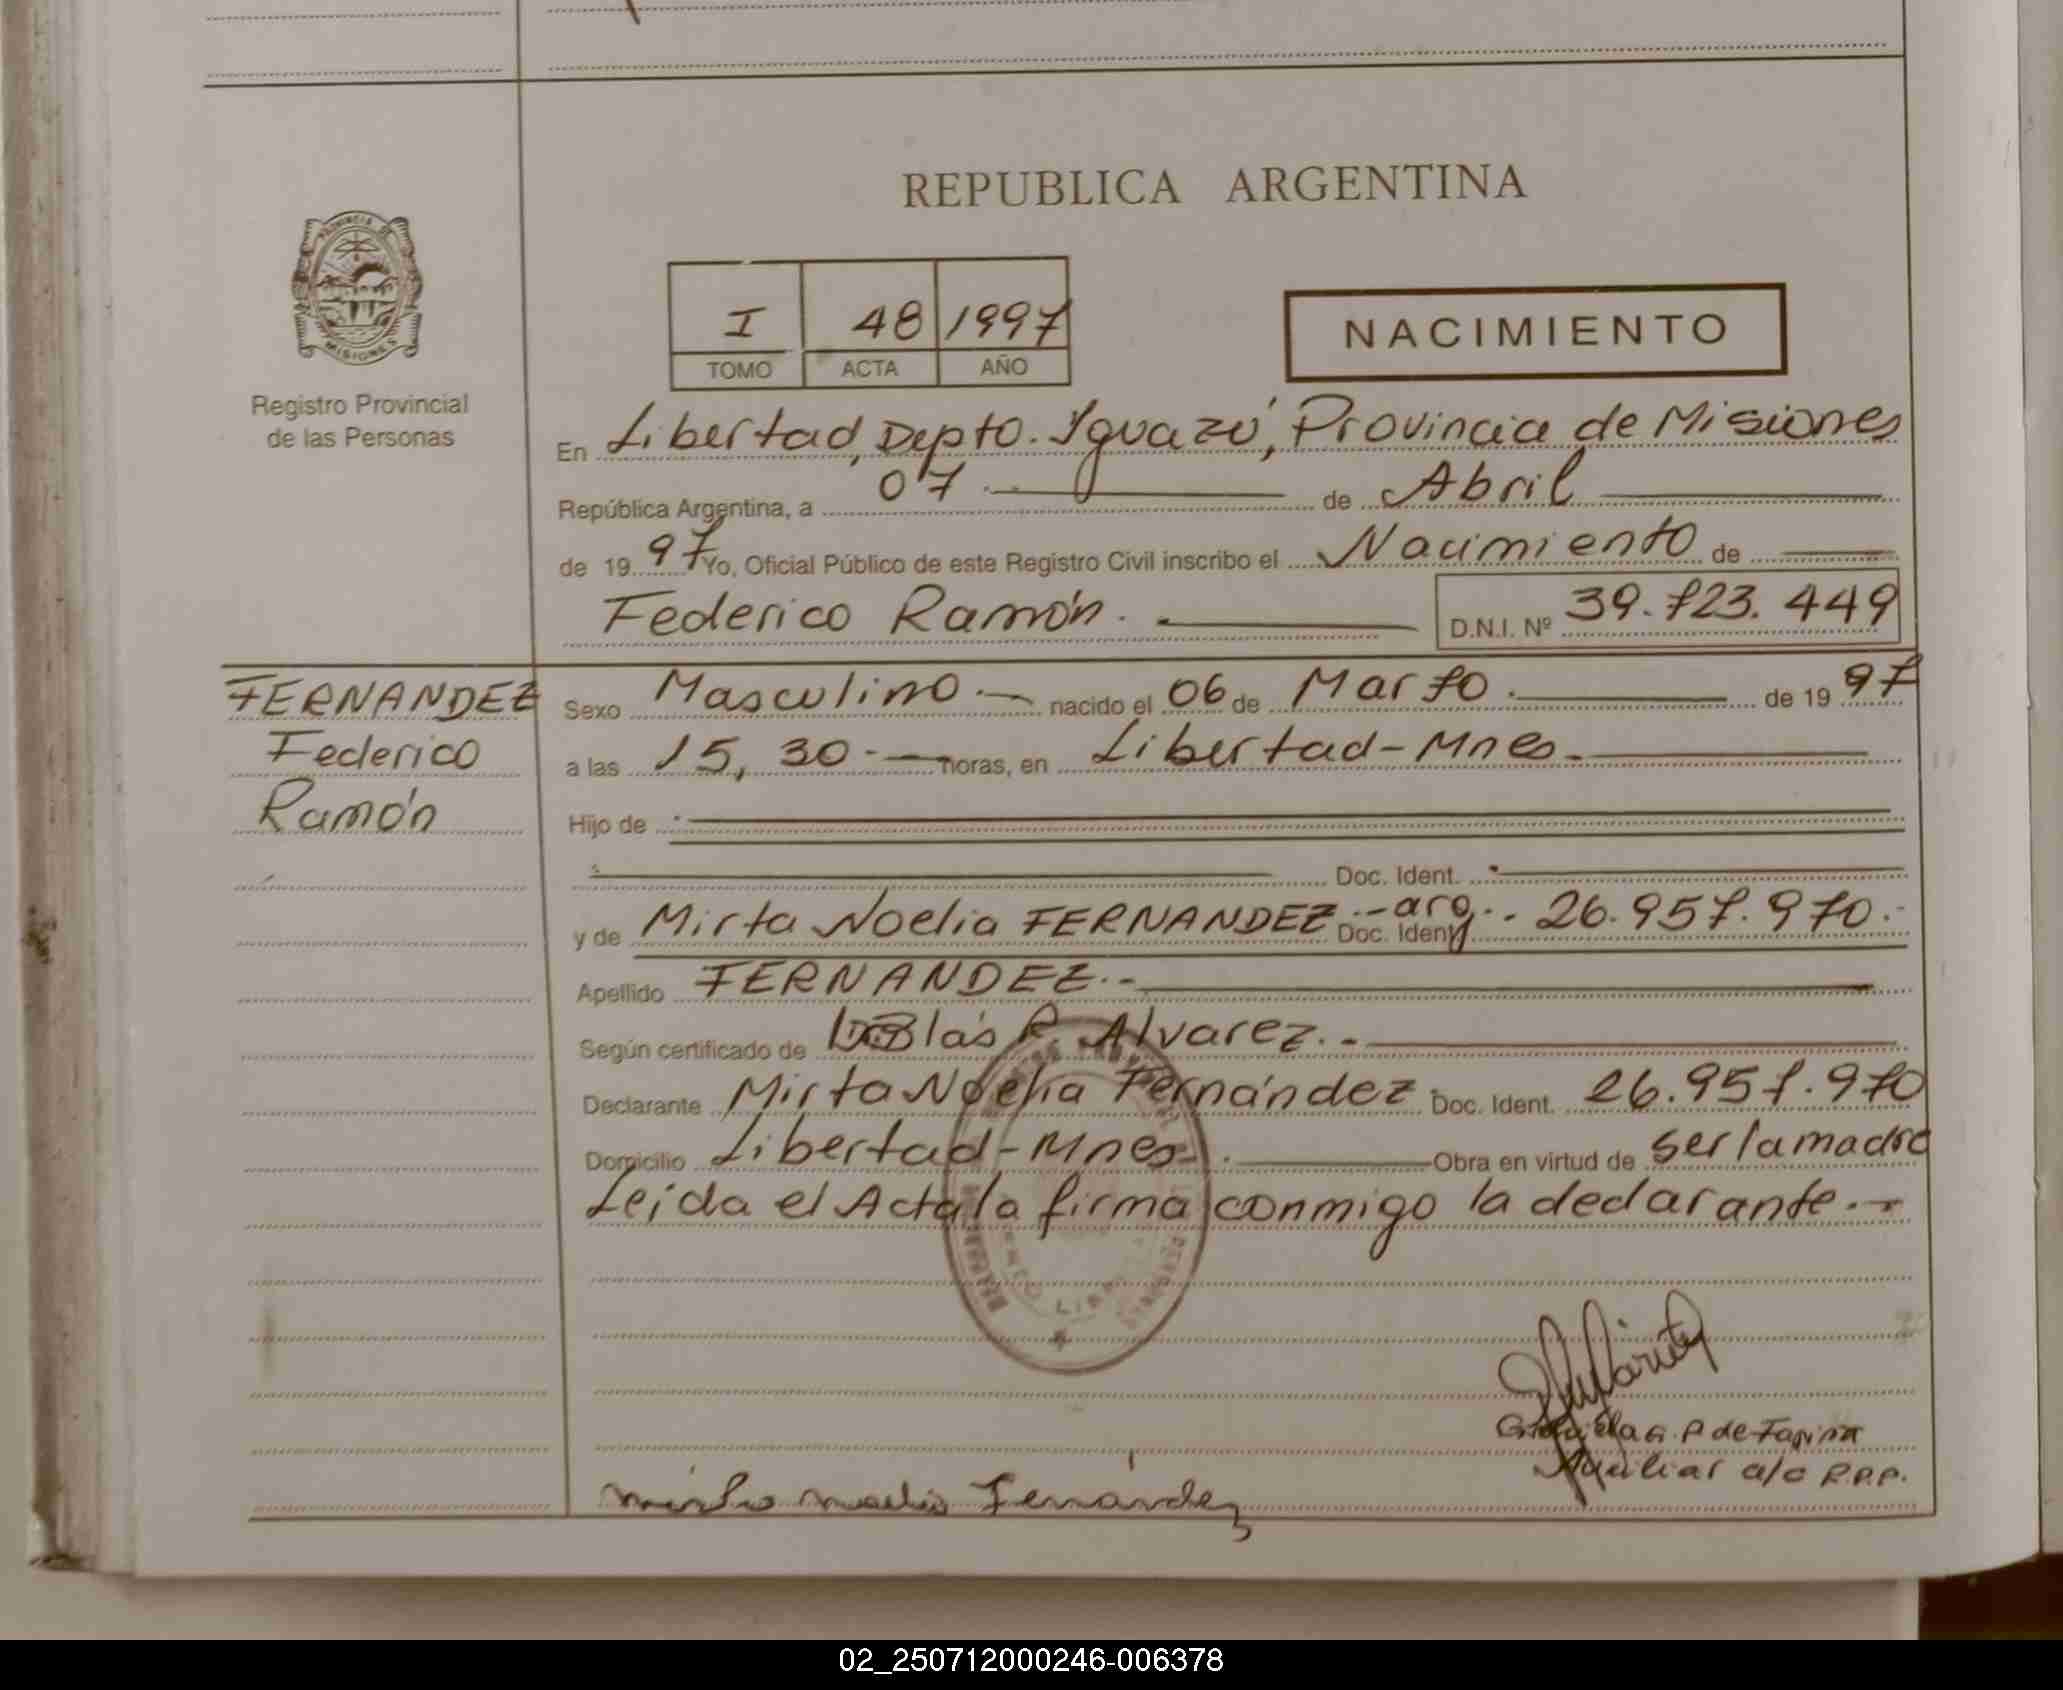 REPUBLICA ARGENTINA
PROVINCIA DE
MISIONES
Registro Provincial
de las Personas
I 48 1997
TOMO ACTA AÑO
NACIMIENTO
En Libertad, Depto. Iguazú, Provincia de Misiones
República Argentina, a 07.— de Abril
de 1997 Yo, Oficial Público de este Registro Civil inscribo el Nacimiento de
Federico Ramón. D.N.I. Nº 39.723.449
FERNANDEZ
Federico
Ramón
Sexo Masculino.— nacido el 06 de Marzo. de 1997
a las 15,30.— horas, en Libertad-Mnes.
Hijo de
Doc. Ident.
y de Mirta Noelia FERNANDEZ.-arg.. Doc. Ident. 26.957.970.-
Apellido FERNANDEZ.-
Según certificado de Blás R. Alvarez.-
Declarante Mirta Noelia Fernández. Doc. Ident. 26.957.970
Domicilio Libertad-Mnes-. Obra en virtud de ser la madre
Leída el Acta la firma conmigo la declarante.-
G. P de Farina
Auxiliar a/c R.P.P.
Mirta Noelia Fernández
02_250712000246-006378